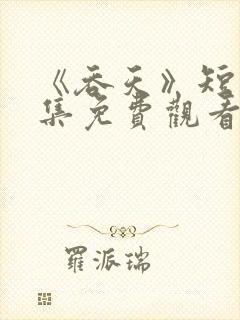 《吞天》短
集免費觀看
羅派瑞